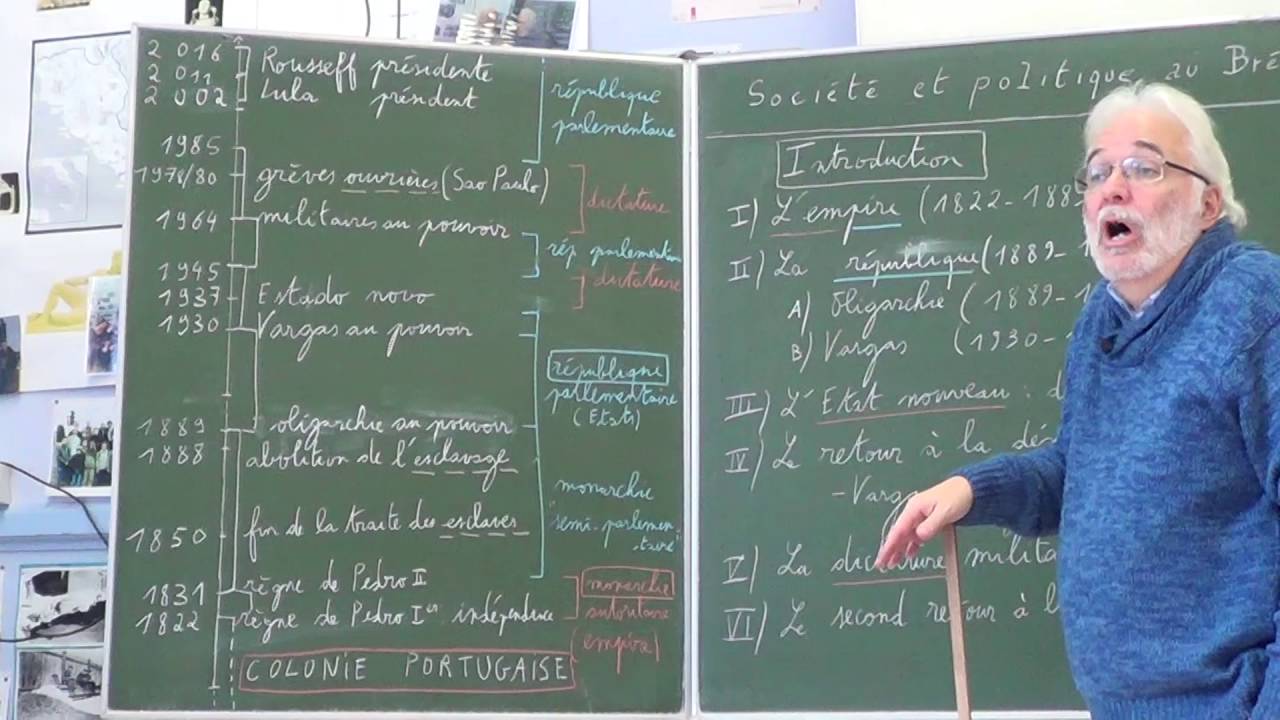 2 016
2 011 Rousseff présidente
2 002 Lula président
république
parlementaire
1985
1978/80 grèves ouvrières (Sao Paulo)
dictature
1964 militaires au pouvoir
rép parlementaire
1945
dictature
1937 Estado novo
1930 Vargas au pouvoir
république
parlementaire
(Etats)
1889 oligarchie au pouvoir
1888 abolition de l'esclavage
monarchie
"semi-parlemen
taire"
1850 fin de la traite des esclaves
1831 règne de Pedro II
1822 règne de Pedro Ier indépendance
monarchie
autoritaire
(empire)
COLONIE PORTUGAISE
Société et politique au Bré
Introduction
I) L'empire (1822-188
II) La république (1889-1
A) Oligarchie (1889-1
B) Vargas (1930-
III) L'Etat nouveau : d
IV) Le retour à la dé
- Varg
V) La dictature milita
VI) Le second retour à l